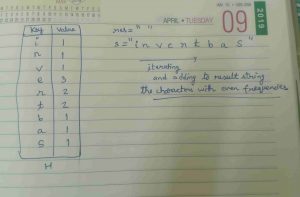 APRIL • TUESDAY
09
2019
Key Value
i 1
n 1
v 1
e 3
r 2
t 2
b 1
a 1
S 1
H
res = " "
s = "i n v e n t b a s"
iterating
and adding to result string
the characters with even frequencies